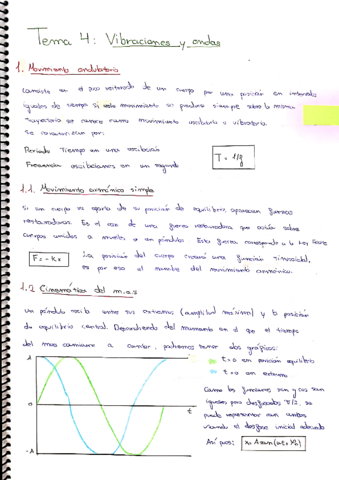 Tema 4: Vibraciones y ondas
1. Movimiento ondulatorio
Consiste en el paso reiterado de un cuerpo por una posición en intervalos
iguales de tiempo si este movimiento se produce siempre sobre la misma
trayectoria se conoce como movimiento oscilatorio o vibratorio.
Se caracterizan por:
Periodo Tiempo en una oscilación
Frecuencia oscilaciones en un segundo
T = 1/f
1.1. Movimiento armónico simple
Si un cuerpo se aparta de su posición de equilibrio, aparecen fuerzas
restauradoras. Es el caso de una fuerza restauradora que actúa sobre
cuerpos unidos a muelles o en péndulos. Esta fuerza corresponde a la ley Hooke
F = -kx
La posición del cuerpo creará una función sinusoidal,
es por eso el nombre del movimiento armónico.
1.2 Cinemática del m.a.s
Un péndulo oscila entre sus extremos (amplitud máxima) y la posición
de equilibrio central. Dependiendo del momento en el que el tiempo
del mas comience a contar, podremos tener dos gráficos:
t=0 en posición equilibrio
t=0 en extremo
A
0
t
-A
Como las funciones sen y cos son
iguales pero desfasados π/2, se
puede representar con ambas
usando el desfase inicial adecuado
Así pues:
x = A sen(ωt + φ₀)